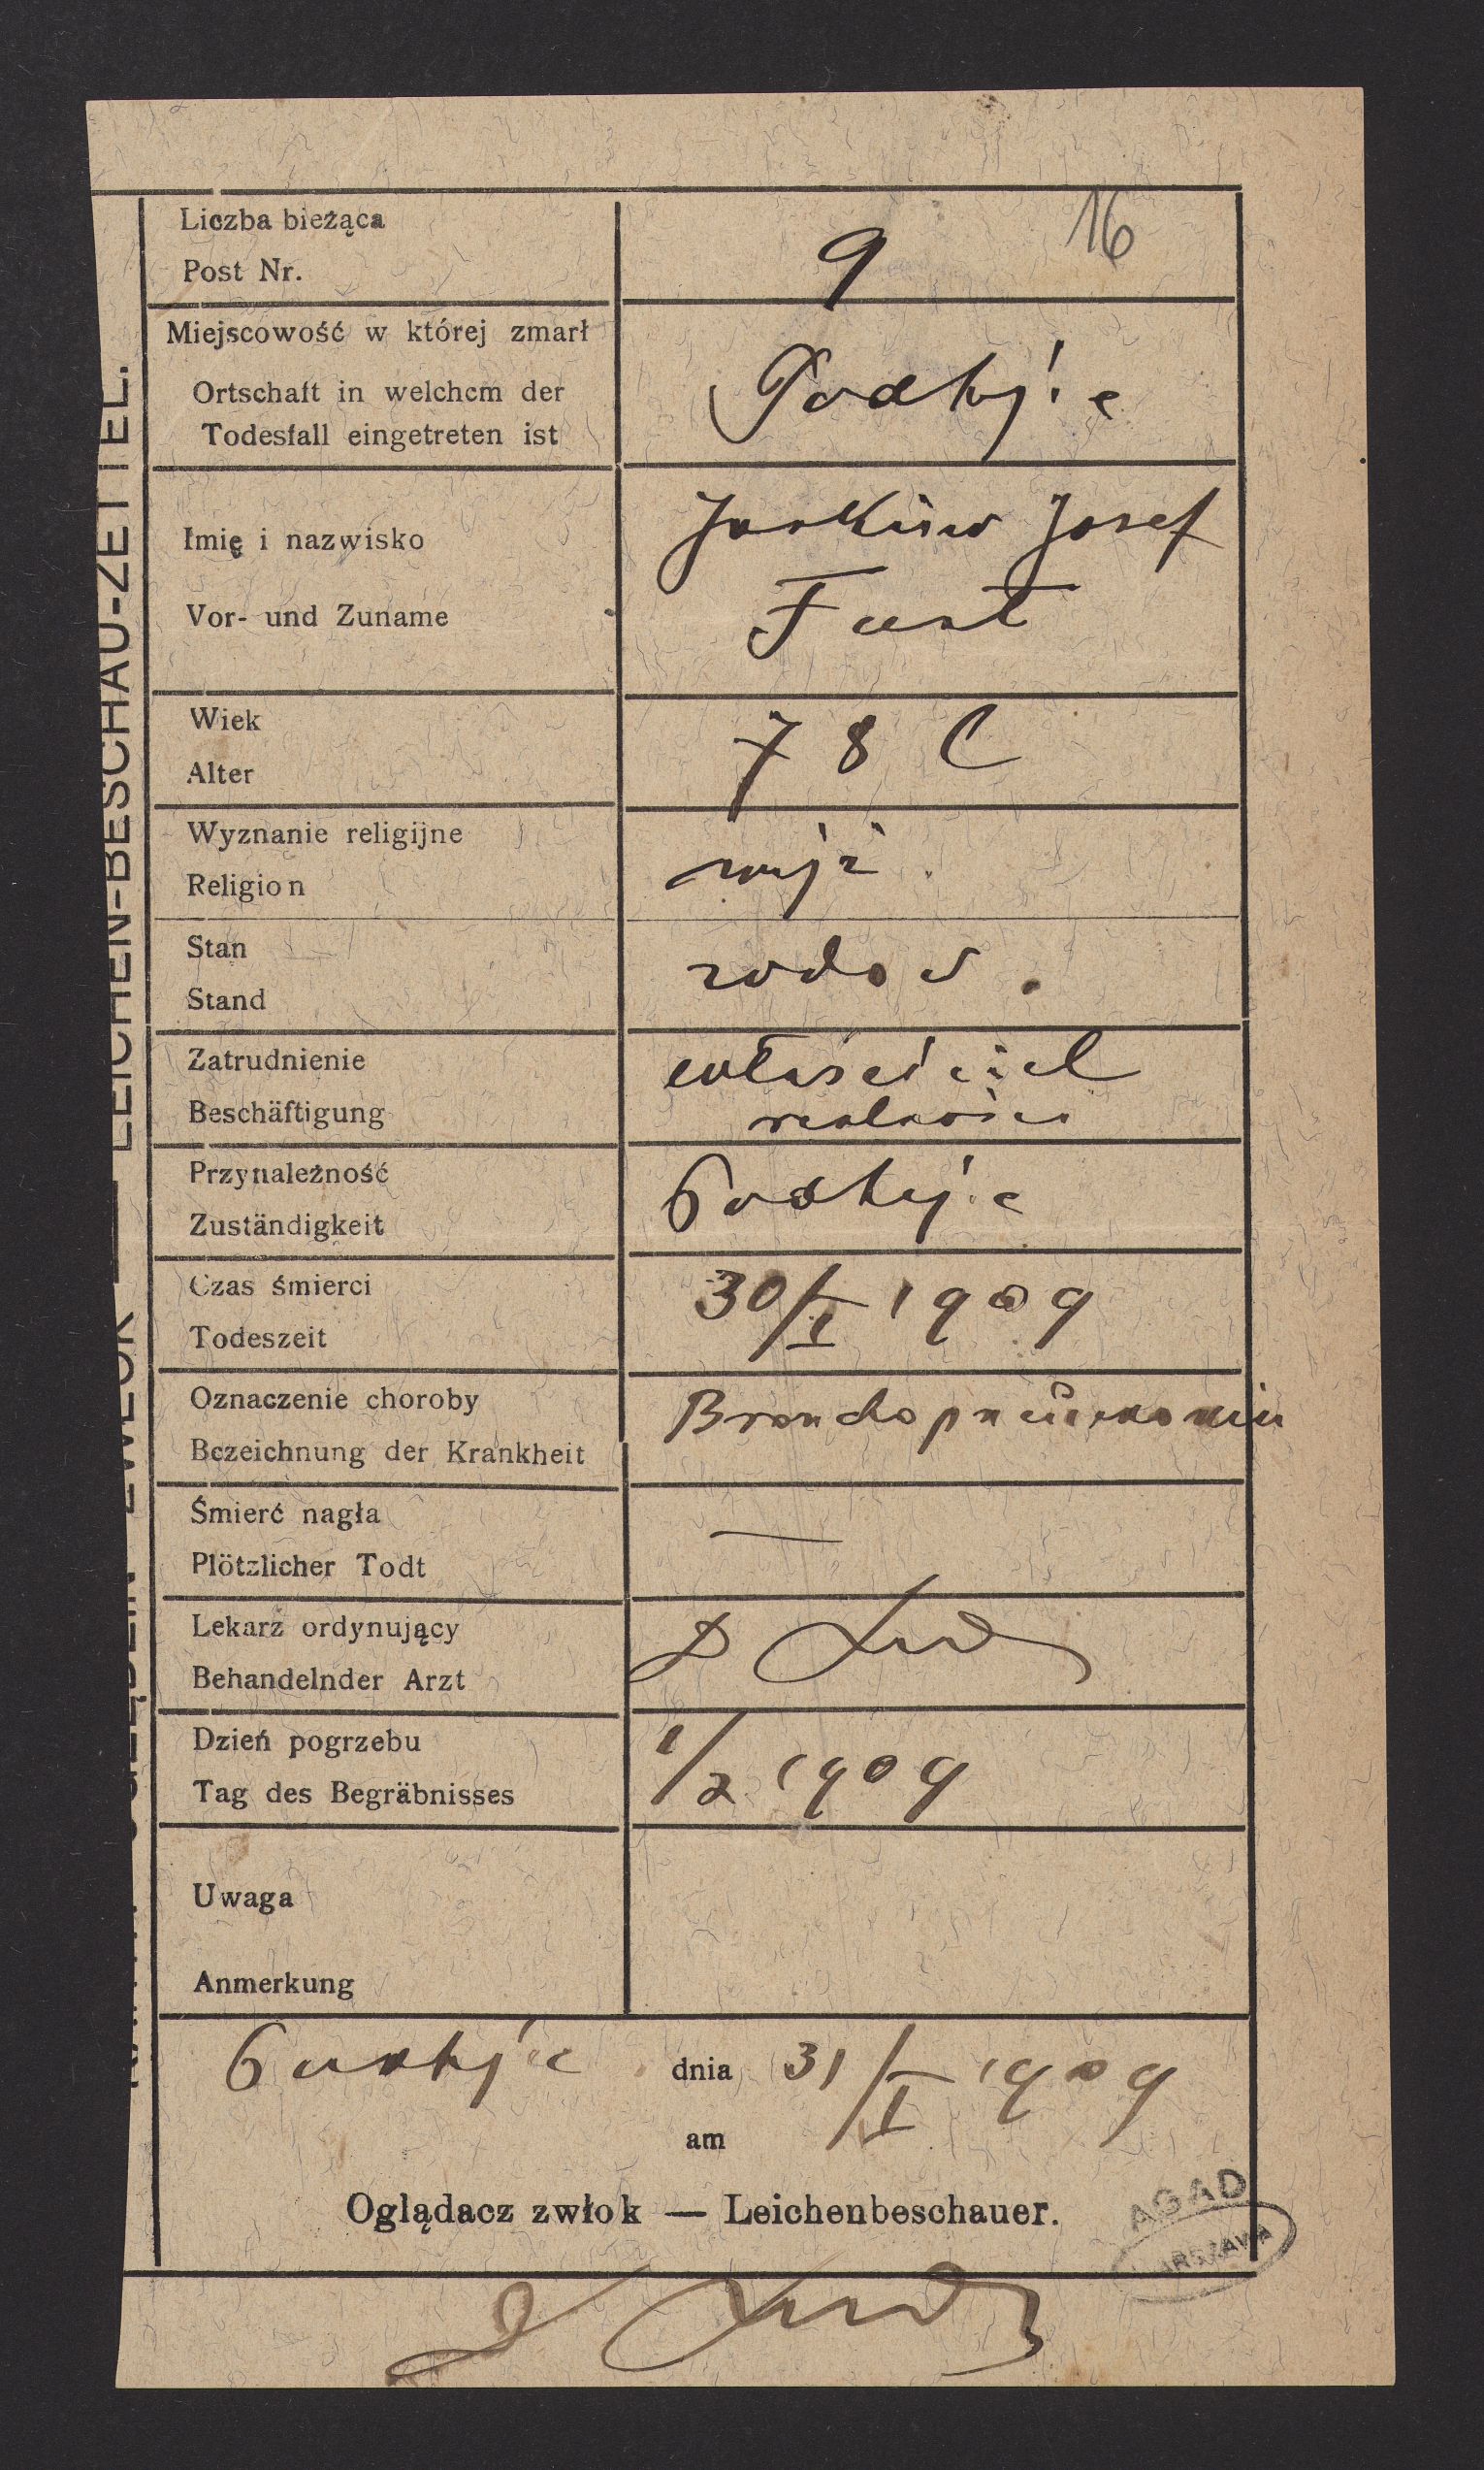 LEICHEN-BESCHAU-ZETTEL.
Liczba bieżąca
Post Nr.
9
16
Miejscowość w której zmarł
Ortschaft in welchem der
Todesfall eingetreten ist
Podhajce
Imię i nazwisko
Vor- und Zuname
Josef
Fast
Wiek
Alter
78
Wyznanie religijne
Religion
mojż.
Stan
Stand
Zatrudnienie
Beschäftigung
właściciel
realności
Przynależność
Zuständigkeit
Podhajce
Czas śmierci
Todeszeit
30/I 1909
Oznaczenie choroby
Bezeichnung der Krankheit
Bronchopneumonia
Śmierć nagła
Plötzlicher Todt
—
Lekarz ordynujący
Behandelnder Arzt
Dzień pogrzebu
Tag des Begräbnisses
1/2 1909
Uwaga
Anmerkung
Podhajce dnia 31/I 1909
am
Oglądacz zwłok — Leichenbeschauer.
AGAD
WARSZAWA